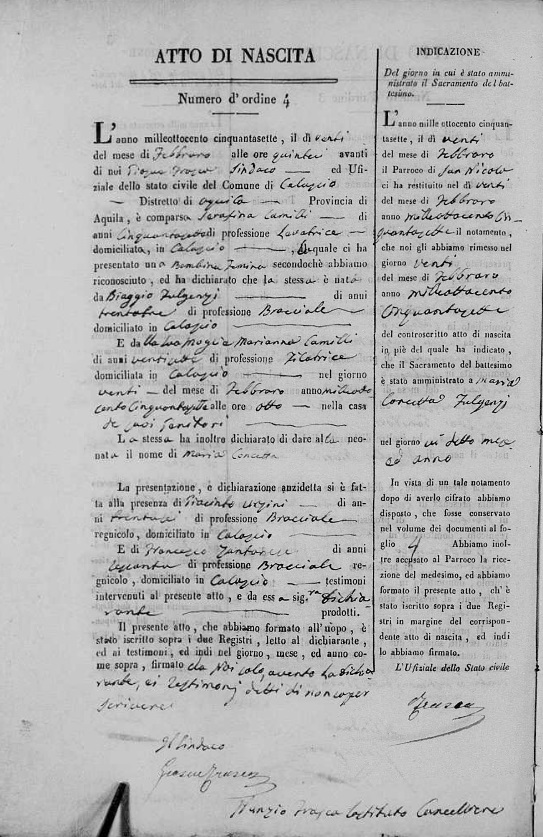 ATTO DI NASCITA
Numero d'ordine 4
L'anno milleottocento cinquantasette, il dì venti
del mese di Febbraro alle ore quindici avanti
di noi Giosue Frasca Sindaco ed Ufi-
ziale dello stato civile del Comune di Calascio
Distretto di Aquila Provincia di
Aquila, è comparsa Serafina Camilli di
anni Cinquantasei di professione Levatrice
domiciliata, in Calascio, la quale ci ha
presentato una Bambina Femina secondochè abbiamo
riconosciuto, ed ha dichiarato che la stessa è nata
da Biaggio Fulgenzi di anni
trentatre di professione Bracciale
domiciliato in Calascio
E da lla sua moglie Marianna Camilli
di anni ventisette di professione Filatrice
domiciliata in Calascio nel giorno
venti del mese di Febbraro anno milleotto
cento Cinquantasette alle ore otto nella casa
de suoi Genitori
La stessa ha inoltre dichiarato di dare alla neo-
nata il nome di Maria Concetta
La presentazione, e dichiarazione anzidetta si è fat-
ta alla presenza di Giacinto di an-
ni di professione Bracciale
regnicolo, domiciliato in Calascio
E di Francesco di anni
di professione Bracciale re-
gnicolo, domiciliato in Calascio testimoni
intervenuti al presente atto, e da essa sig.ra dichia
rante prodotti.
Il presente atto, che abbiamo formato all'uopo, è
stato iscritto sopra i due Registri, letto al dichiarante,
ed ai testimoni, ed indi nel giorno, mese, ed anno co-
me sopra, firmato da Noi solo, avendo la dichia
rante, ei testimonj detti di non saper
scrivere
Il Sindaco
Giosue Frasca
Nunzio Frasca Sostituto Cancelliere
INDICAZIONE
Del giorno in cui è stato ammi-
nistrato il Sacramento del bat-
tesimo.
L'anno mille ottocento cinquan-
tasette, il dì venti
del mese di Febbraro
il Parroco di San Nicola
ci ha restituito nel dì venti
del mese di Febbraro
anno milleottocento Cin
quantasette il notamento,
che noi gli abbiamo rimesso nel
giorno venti
del mese di Febbraro
anno milleottocento
Cinquantasette
del controscritto atto di nascita
in piè del quale ha indicato,
che il Sacramento del battesimo
è stato amministrato a Maria
Concetta Fulgenzi
nel giorno detto mese
ed anno
In vista di un tale notamento
dopo di averlo cifrato abbiamo
disposto, che fosse conservato
nel volume dei documenti al fo-
glio 4 Abbiamo inol-
tre accusato al Parroco la rice-
zione del medesimo, ed abbiamo
formato il presente atto, ch' è
stato iscritto sopra i due Regi-
stri in margine del corrispon-
dente atto di nascita, ed indi
lo abbiamo firmato.
L'Ufiziale dello Stato civile
Frasca